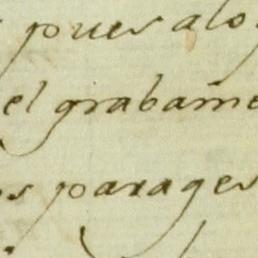 pues alo
el grabame
os parages